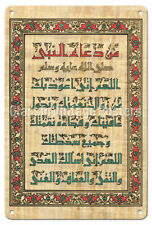 من دعاء النبي
صلى الله عليه وسلم
اللهم إني أعوذ بك
من زوال نعمتك وتحول
عافيتك وفجاءة نقمتك
وجميع سخطك
اللهم إني أسألك الهدى
والتقى والعفاف والغنى